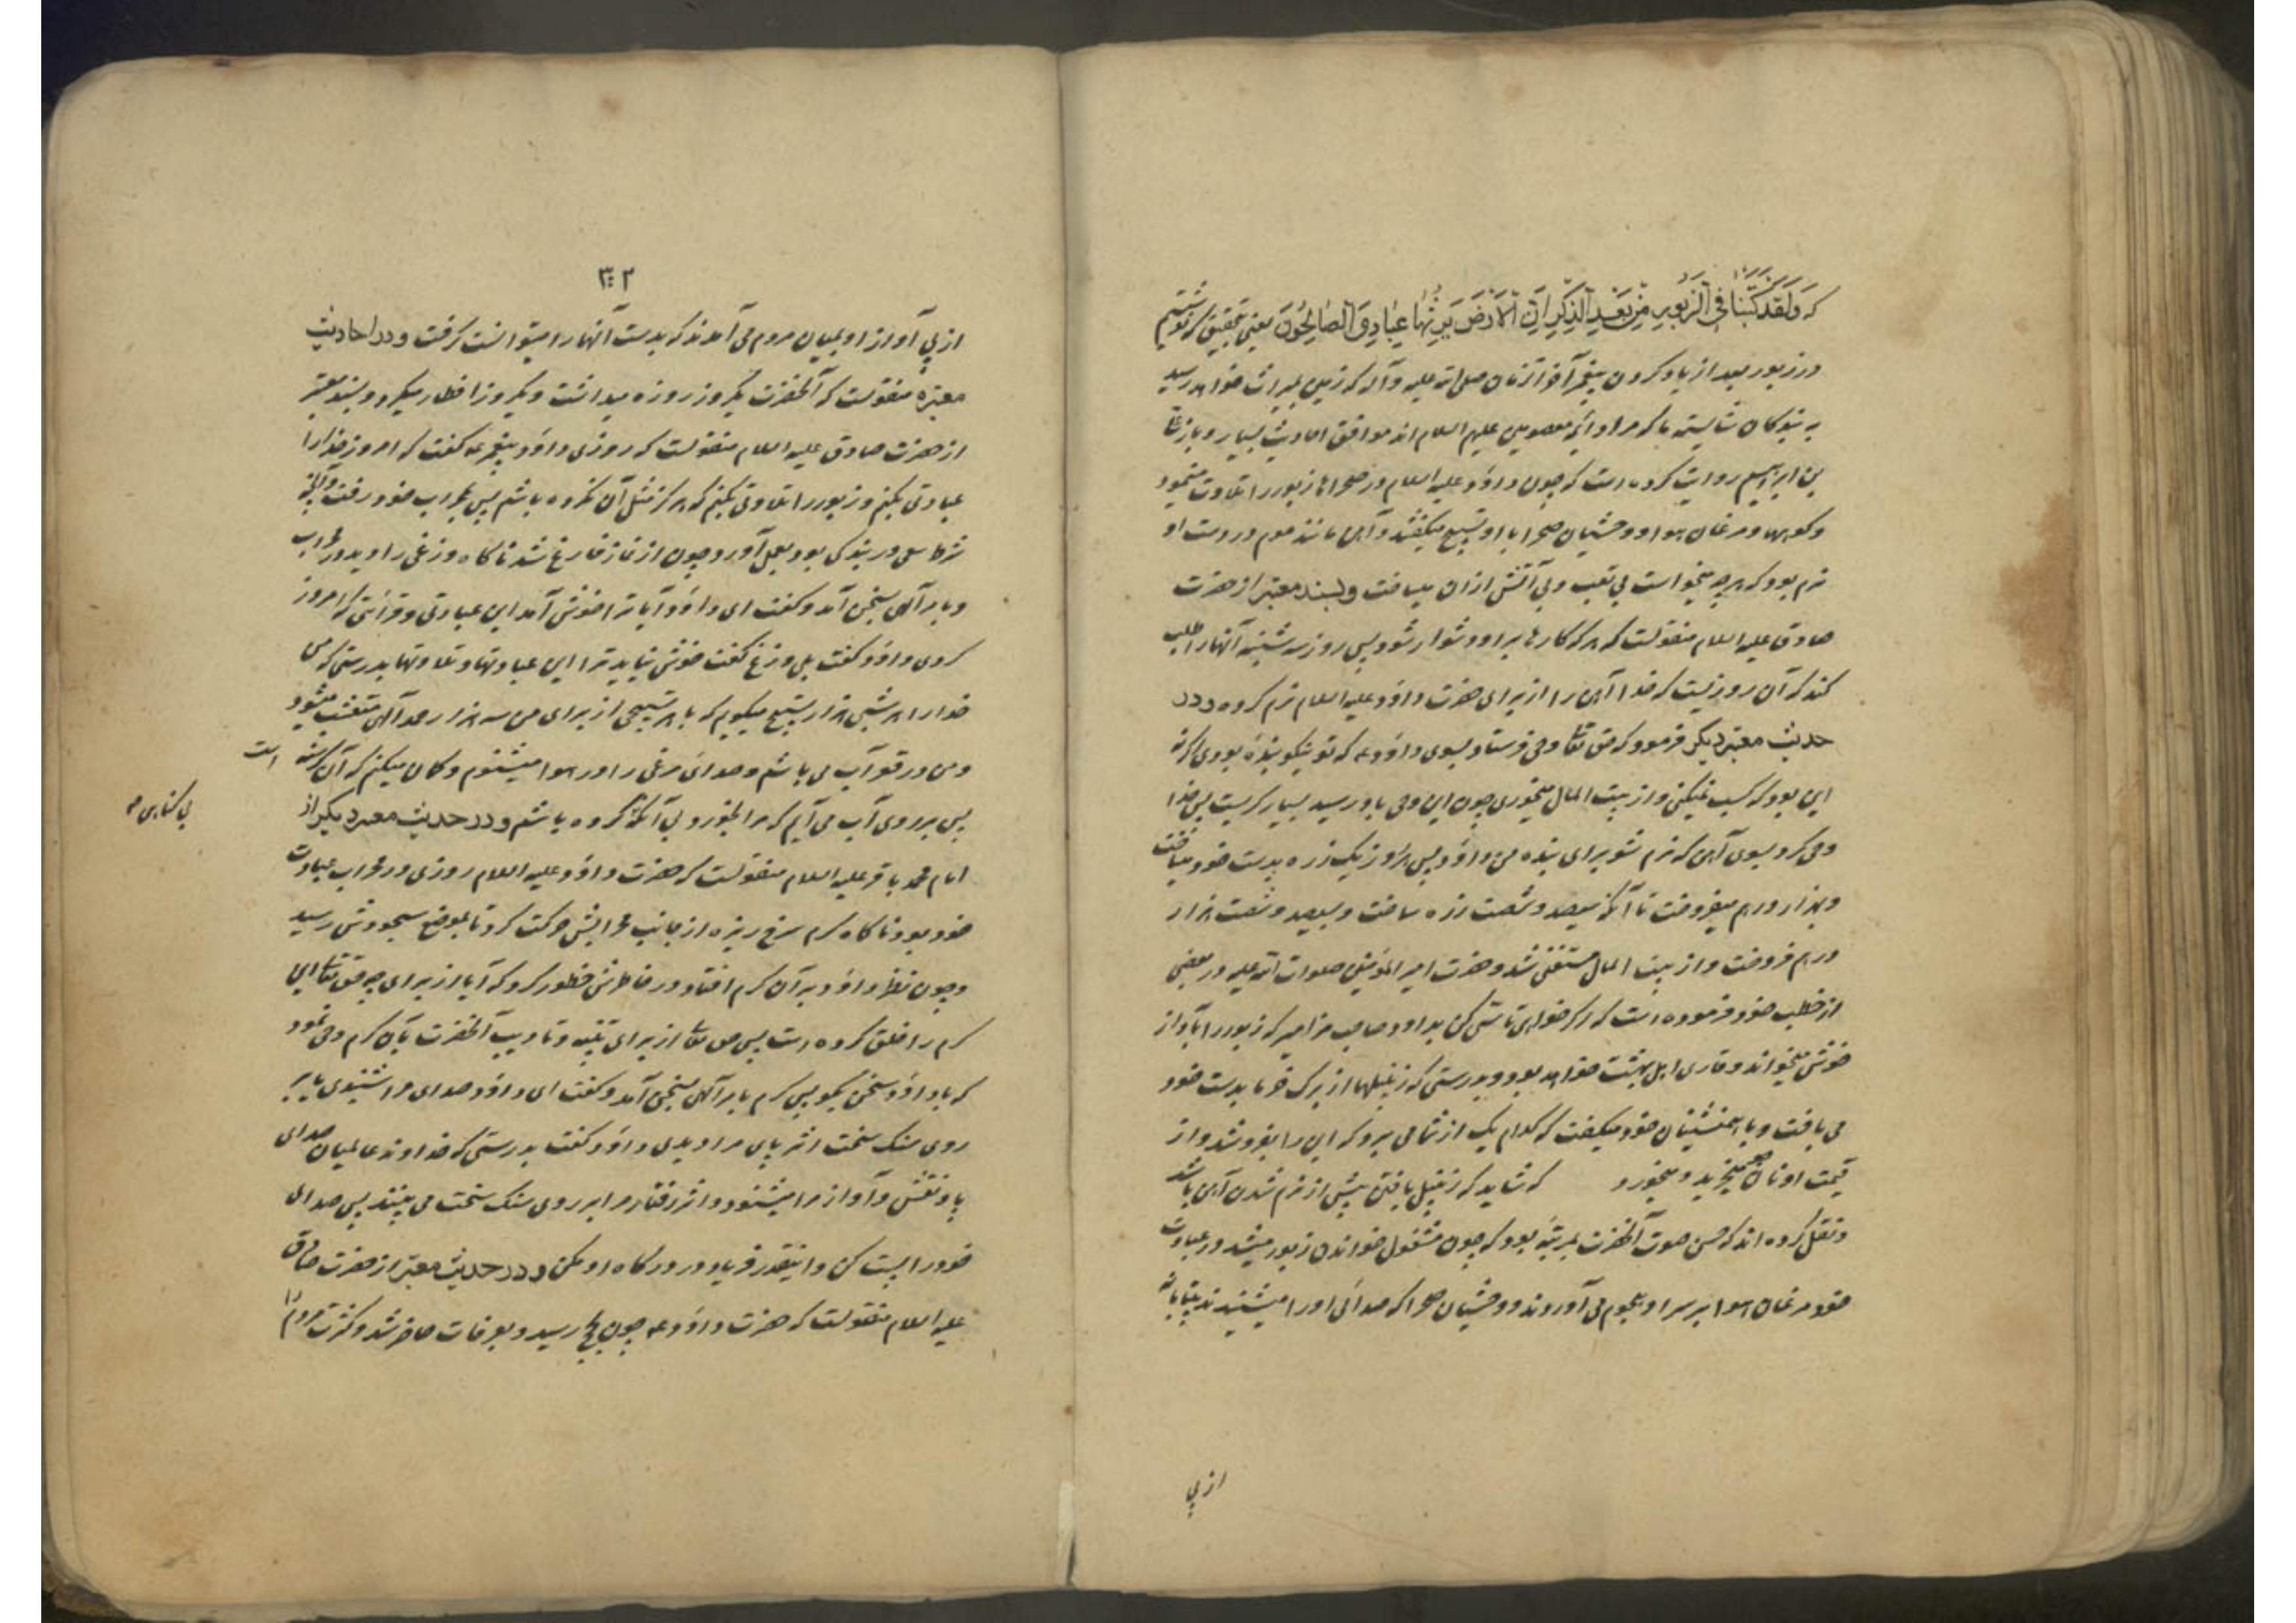 که وَلَقَدْ کَتَبْنا فِی الزَّبُورِ مِنْ بَعْدِ الذِّکْرِ اَنَّ الْاَرْضَ یَرِثُها عِبادِیَ الصّالِحُونَ یعنی بتحقیق که نوشتیم
در زبور بعد از یاد کردن پیغمبر آخر الزمان صلی الله علیه و آله که زمین بمیراث خواهد رسید
به بندکان شایسته ما که مراد ائمه معصومین علیهم السلام اند موافق احادیث بسیار و باز علی
بن ابراهیم روایت کرده است که چون داود علیه السلام در صحراها زبور را تلاوت مینمود
و کوهها و مرغان هوا و وحشیان صحرا با او تسبیح میکفتند و آهن مانند موم در دست او
نرم بود که هر چه میخواست بی تعب و بی آتش از ان میساخت و بسند معتبر از حضرت
صادق علیه السلام منقولست که هر که کارها بر او دشوار شود پس روز سه شنبه آنها را طلب
کند که آن روزیست که خدا آهن را از برای حضرت داود علیه السلام نرم کرد و در
حدیث معتبر دیکر فرمود که حق تعالی وحی فرستاد بسوی داود ع که تو نیکو بنده بودی اکر نه
این بود که کسب نمیکنی و از بیت المال میخوری چون این وحی باو رسید بسیار کریست پس خدا
وحی کرد بسوی آهن که نرم شو برای بنده من داود پس هر روز یک زره بدست خود میبافت
و بهزار درهم میفروخت تا آنکه سیصد و شصت زره ساخت و بسیصد و شصت هزار
درهم فروخت و از بیت المال مستغنی شد و حضرت امیر المؤمنین صلوات الله علیه در بعضی
از خطب خود فرموده است که اکر خواهی تاسی کن بداود صاحب مزامیر که زبور را بآواز
خوش میخواند و قاری اهل بهشت خواهد بود و بدرستی که زنبیلها از برک خرما بدست خود
می بافت و با همنشینان خود میکفت که کدام یک از شما می برد که این را بفروشد و از
قیمت او نان جو میخرید و میخورد که شاید که زنبیل بافتن پیش از نرم شدن آهن باشد
و نقل کرده اند که حسن صوت آنحضرت بمرتبه بود که چون مشغول خواندن زبور میشد در عبادت
خود مرغان هوا بر سر او هجوم می آوردند و وحشیان صحرا که صدای او را میشنیدند بیتابانه
از پی
۳۰۲
از پی آواز او بمیان مردم می آمدند که بدست آنها را میتوانست کرفت و در احادیث
معتبره منقولست که آنحضرت یکروز روزه میداشت و یکروز افطار میکرد و بسند معتبر
از حضرت صادق علیه السلام منقولست که روزی داود پیغمبر ع کفت که امروز خدا را
عبادتی بکنم و زبور را تلاوتی بکنم که هرکز مثل آن نکرده باشم پس بمحراب خود رفت و آنچه
شرط سعی در بندکی بود بعمل آورد چون از نماز فارغ شد ناکاه وزغی را دید در محراب
و بامر آلهی بسخن آمد و کفت ای داود آیا ترا خوش آمد این عبادتی و قرائتی که امروز
کردی داود کفت بلی وزغ کفت خوش نیاید ترا این عبادتها و تلاوتها بدرستی که من
خدا را هر شبی هزار تسبیح میکویم که با هر تسبیحی از برای من سه هزار حمد آلهی منشعب میشود
و من در قعر آب می باشم و صدای مرغی را در هوا میشنوم و کمان میکنم که آن کرسنه است
پس بر روی آب می آیم که مرا بخورد بی آنکه کرده باشم و در حدیث معتبر دیکر از
بی کناهی
امام محمد باقر علیه السلام منقولست که حضرت داود علیه السلام روزی در محراب عبادت
خود بود ناکاه کرم سرخ ریزه از جانب محرابش حرکت کرد تا بموضع سجودش رسید
و چون نظر داود بر آن کرم افتاد در خاطرش خطور کرد که آیا از برای چه حق تعالی این
کرم را خلق کرده است پس حق تعالی از برای تنبیه و تادیب آنحضرت بآن کرم وحی نمود
که با داود سخن بکو پس کرم بامر آلهی بسخن آمد و کفت ای داود صدای مرا شنیدی یا بر
روی سنک سخت اثر پای مرا دیدی داود کفت بدرستی که خداوند عالمیان صدای
پا و نفس و آواز مرا میشنود و اثر رفتار مرا بر روی سنک سخت می بیند پس صدای
خود را پست کن و اینقدر فریاد در درکاه او مکن و در حدیث معتبر از حضرت صادق
علیه السلام منقولست که حضرت داود ع چون بحج رسید و بعرفات حاضر شد و کثرت مردم را